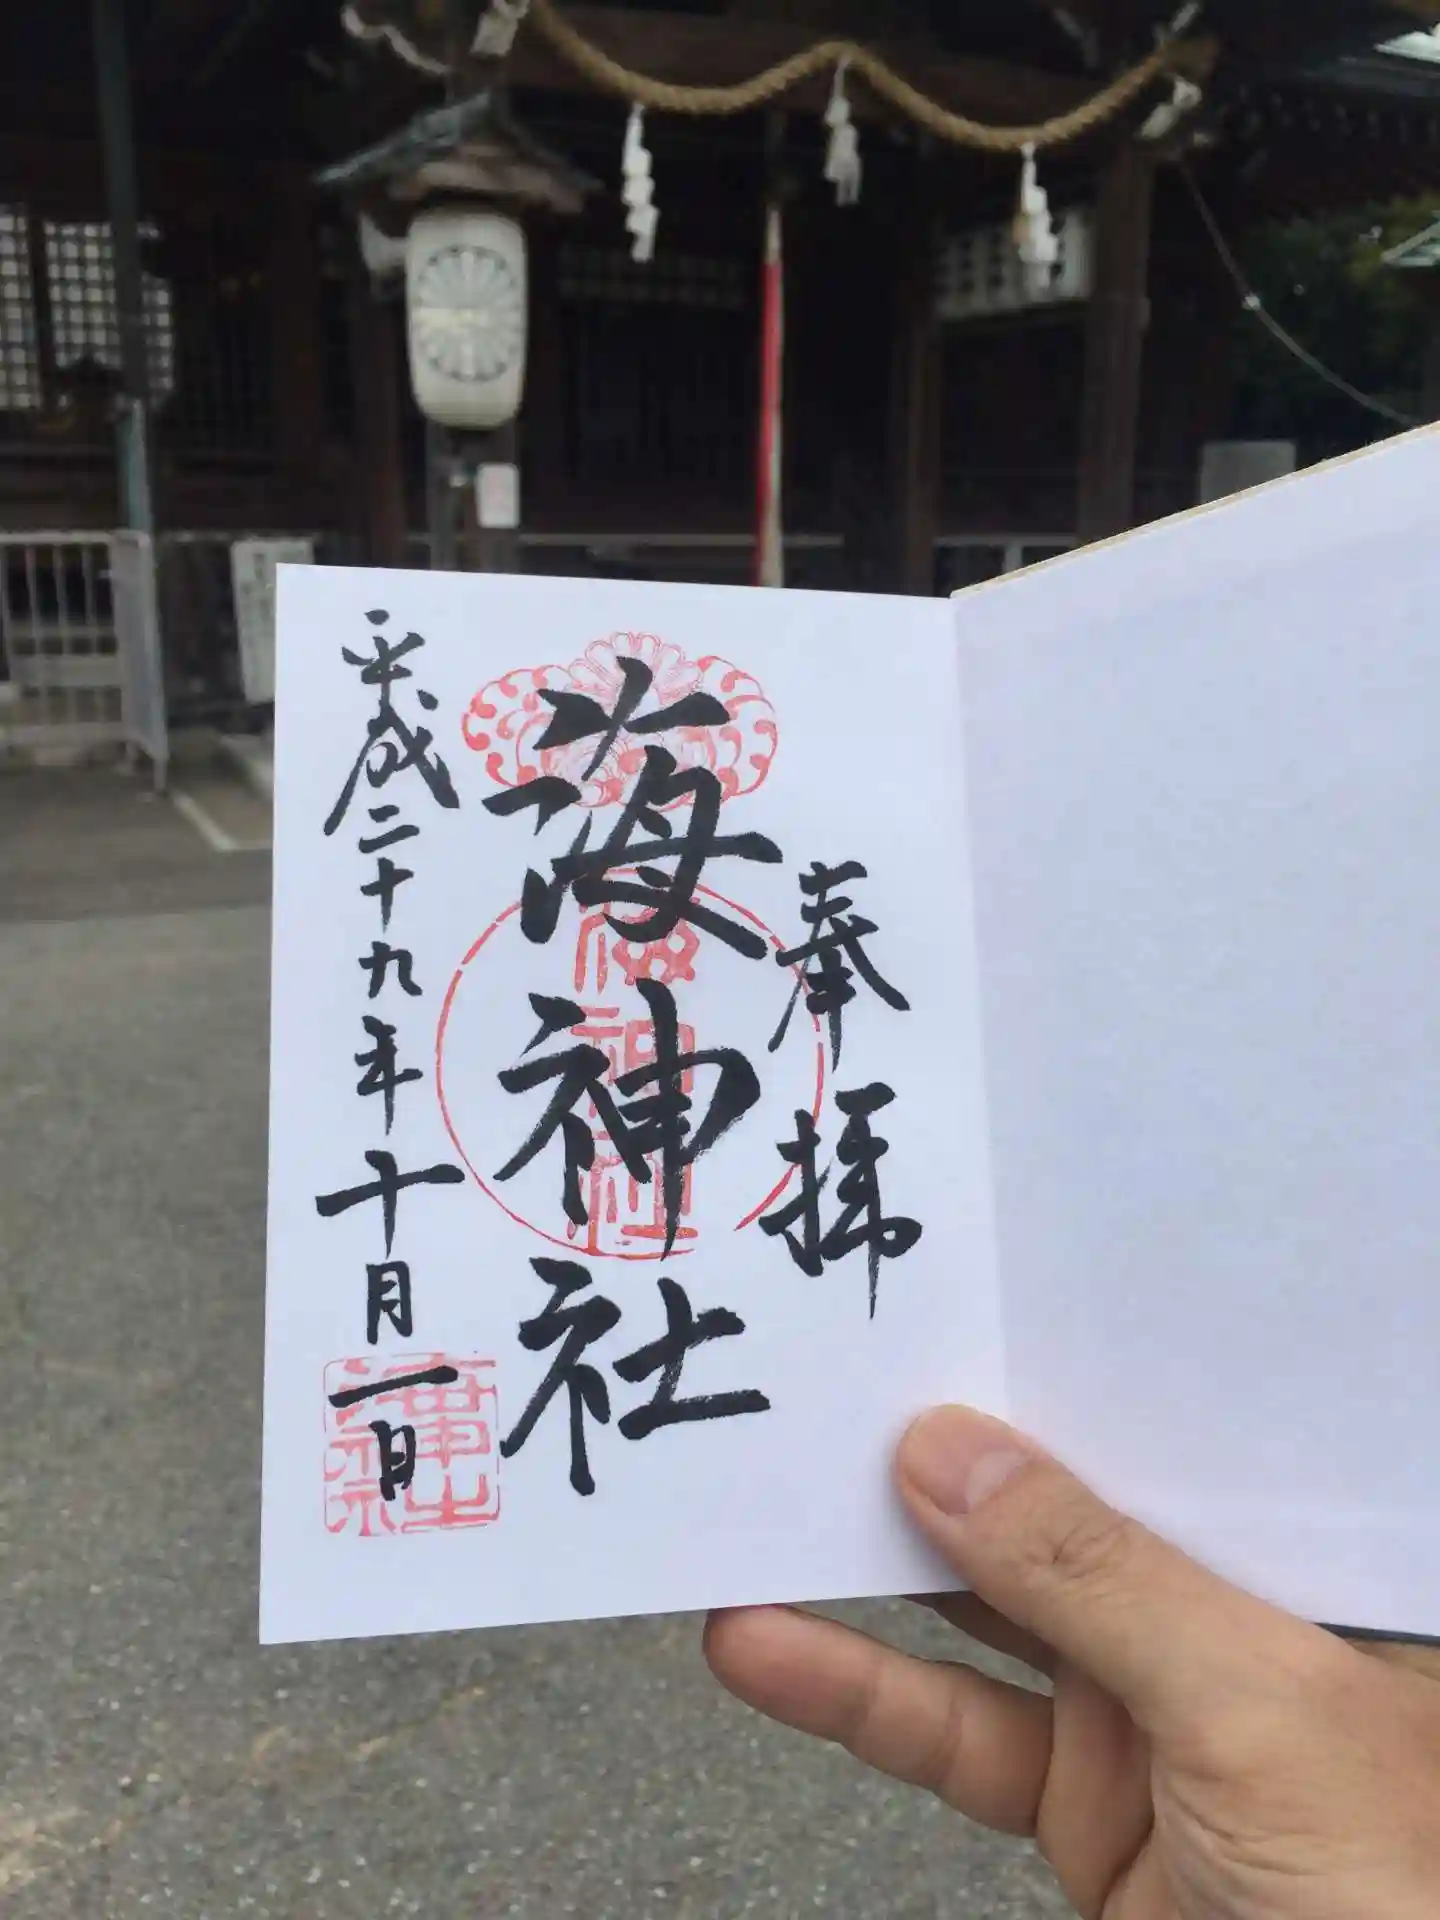 奉拝
海神社
平成二十九年十月一日
海神社